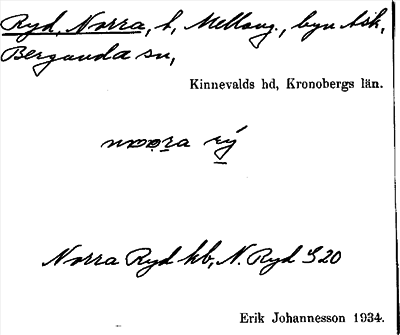 Ryd, Norra, t, Mellang., byn Ask,
Bergunda sn,
Kinnevalds hd, Kronobergs län.
Norra Ryd hb, N. Ryd S20
Erik Johannesson 1934.